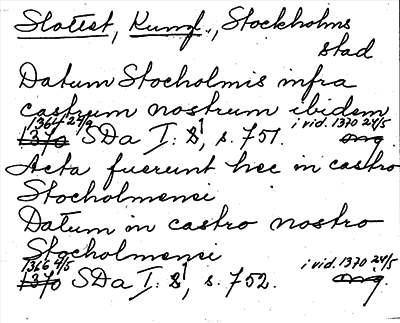 Slottet, Kungl., Stockholms
stad
Datum Stocholmis infra
castrum nostrum ibidem
1364 27/9 i vid. 1370 24/5
1370 SDa I: 81, s. 751. orig
Acta fuerunt hec in castro
Stocholmensi
Datum in castro nostro
Stocholmensi
1366 4/5 i vid. 1370 24/5
1370 SDa I: 81, s. 752. orig.